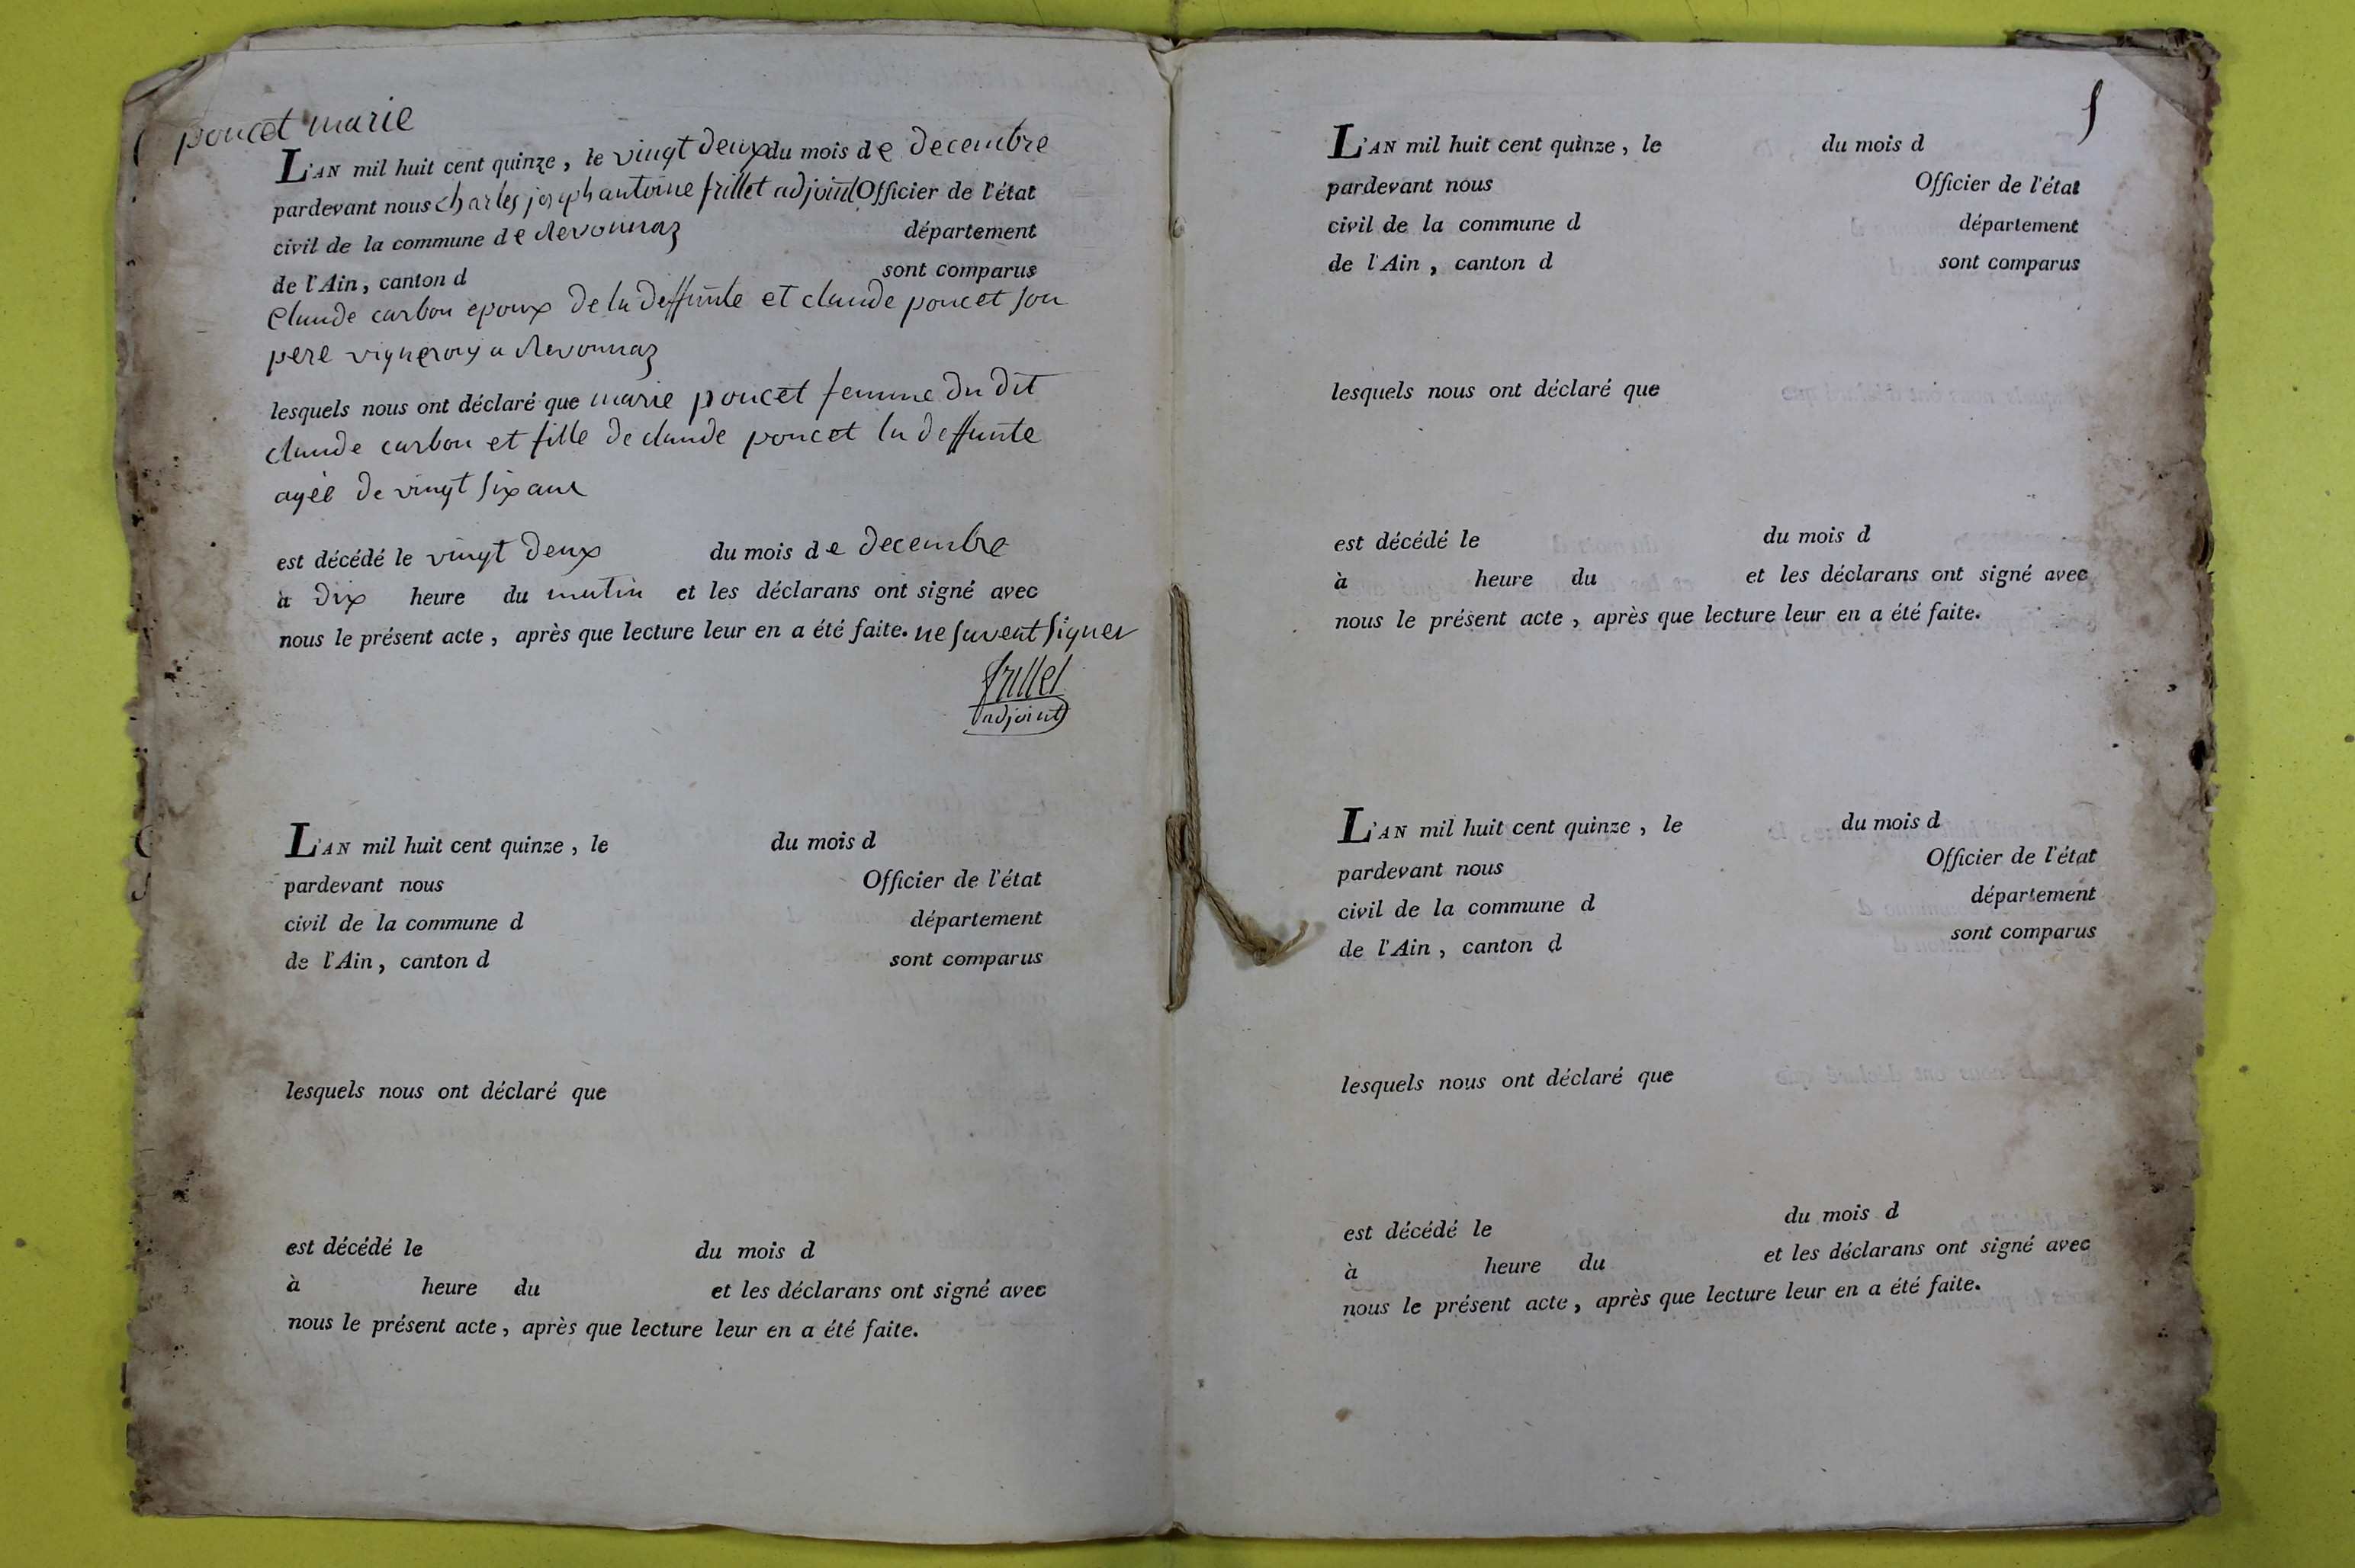 poncet marie
L'AN mil huit cent quinze, le vingt deux du mois de decembre
pardevant nous charles joseph antoine frillet adjoint Officier de l'état
civil de la commune de Revonnaz département
de l'Ain, canton d sont comparus
Claude carbon epoux de la deffunte et claude poncet son
pere vignerons a Revonnaz
lesquels nous ont déclaré que marie poncet femme du dit
claude carbon et fille de claude poncet la deffunte
agéé de vingt six ans
est décédé le vingt deux du mois de decembre
à dix heure du matin et les déclarans ont signé avec
nous le présent acte, après que lecture leur en a été faite. ne savent signer
frillet
adjoint
L'AN mil huit cent quinze, le du mois d
pardevant nous Officier de l'état
civil de la commune d département
de l'Ain, canton d sont comparus
lesquels nous ont déclaré que
est décédé le du mois d
à heure du et les déclarans ont signé avec
nous le présent acte, après que lecture leur en a été faite.
L'AN mil huit cent quinze, le du mois d
pardevant nous Officier de l'état
civil de la commune d département
de l'Ain, canton d sont comparus
lesquels nous ont déclaré que
est décédé le du mois d
à heure du et les déclarans ont signé avec
nous le présent acte, après que lecture leur en a été faite.
L'AN mil huit cent quinze, le du mois d
pardevant nous Officier de l'état
civil de la commune d département
de l'Ain, canton d sont comparus
lesquels nous ont déclaré que
est décédé le du mois d
à heure du et les déclarans ont signé avec
nous le présent acte, après que lecture leur en a été faite.